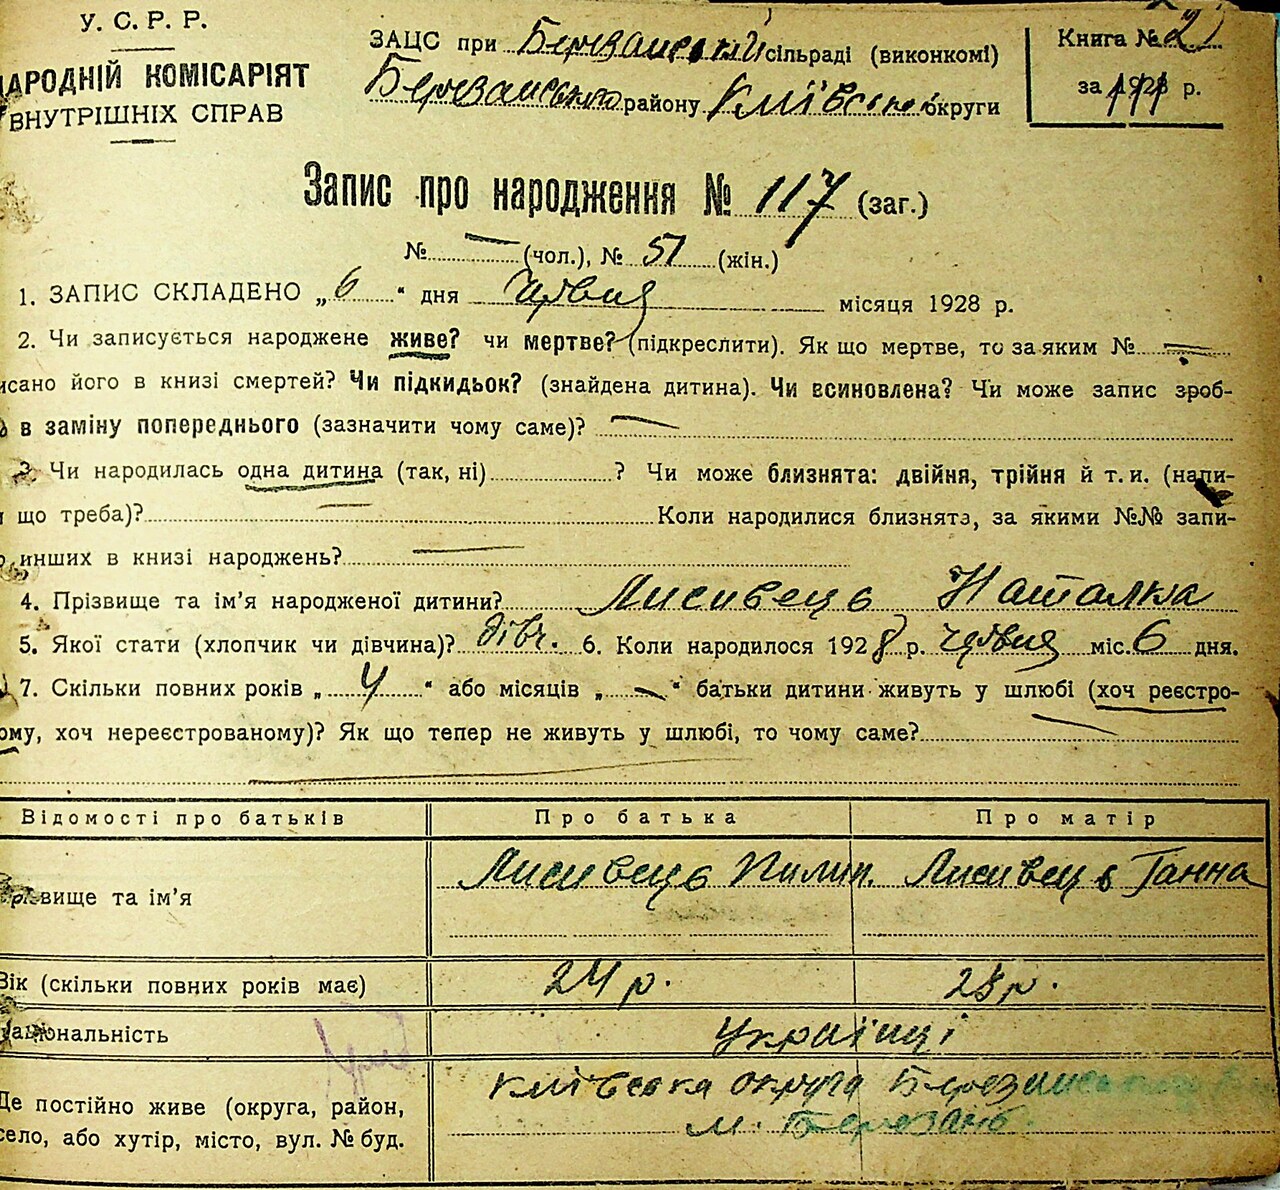 У. С. Р. Р.
НАРОДНІЙ КОМІСАРІЯТ
ВНУТРІШНІХ СПРАВ
ЗАЦС при Березанській сільраді (виконкомі)
Березанського району Київської округи
Книга № 2
за 1928 р.
Запис про народження № 117 (заг.)
№ — (чол.), № 51 (жін.)
1. ЗАПИС СКЛАДЕНО „6“ дня червня місяця 1928 р.
2. Чи записується народжене живе? чи мертве? (підкреслити). Як що мертве, то за яким № —
исано його в книзі смертей? Чи підкидьок? (знайдена дитина). Чи всиновлена? Чи може запис зроб-
в заміну попереднього (зазначити чому саме)? —
3. Чи народилась одна дитина (так, ні) ? Чи може близнята: двійня, трійня й т. и. (напи-
що треба)? — Коли народилися близнята, за якими №№ запи-
инших в книзі народжень? —
4. Прізвище та ім’я народженої дитини? Лисивець Наталка
5. Якої стати (хлопчик чи дівчина)? дівч. 6. Коли народилося 1928 р. червня міс. 6 дня.
7. Скільки повних років „4“ або місяців „—“ батьки дитини живуть у шлюбі (хоч реєстро-
ому, хоч нереєстрованому)? Як що тепер не живуть у шлюбі, то чому саме? —
Відомості про батьків Про батька Про матір
Прізвище та ім’я Лисивець Пилип. Лисивець Ганна
Вік (скільки повних років має) 24 р. 23 р.
Національність Українці
Де постійно живе (округа, район, Київська округа Березанський
село, або хутір, місто, вул. № буд. м. Березань.